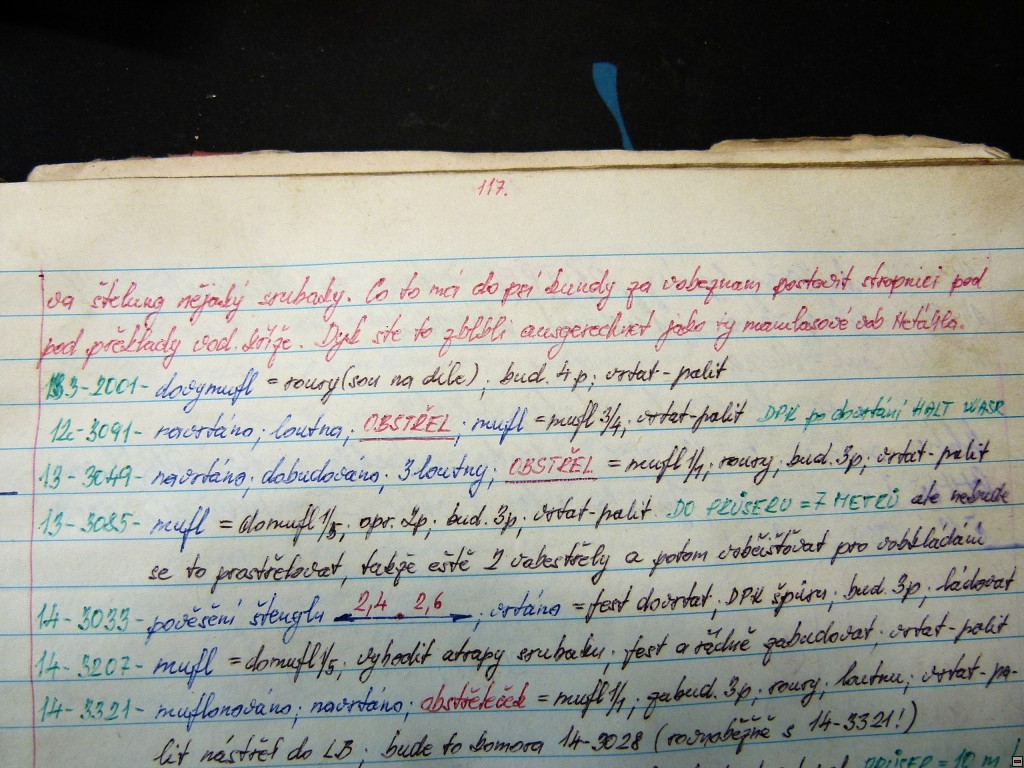 117.
va štelung nějaký srubady. Co to má do pči kundy za vobeznam postavit stropnici pod
pod překlady vod kříže. Dyk ste to zblbli ausgerechnet jako ty mamlasové vob Metálila.
133-2001- dovymufl = roury (sou na díle); bud. 4p; vrtat-palit
12c-3091- navrtáno; loutna; OBSTŘEL; mufl = mufl 3/4, vrtat-palit DPK po dovrtání HALT WASR
13-3049- navrtáno, dobudováno; 3 loutny; OBSTŘEL = mufl 1/1; roury; bud. 3p; vrtat-palit
13-3085- mufl = domufl 1/5; opr. 2p; bud. 3p; vrtat-palit. DO PRŮSERU = 7 METRŮ ale nebude
se to prostřelovat, takže eště 2 vobestřely a potom voběišťovat pro vobkládání
14-3033- pověšení štenglu 2,4 2,6; vrtáno = fest dovrtat. DPK špúru; bud. 3p; ládovat
14-3207- mufl = domufl 1/5; vyhodit atrapy srubaku; fest a řádně zabudovat; vrtat-palit
14-3321- muflonováno; navrtáno; obstřeleček = mufl 1/1; zabud. 3p; roury; loutnu; vrtat-pa-
lit nástřel do LB; bude to komora 14-3028 (rovnoběžně s 14-3321!)
PRŮSER = 10 m